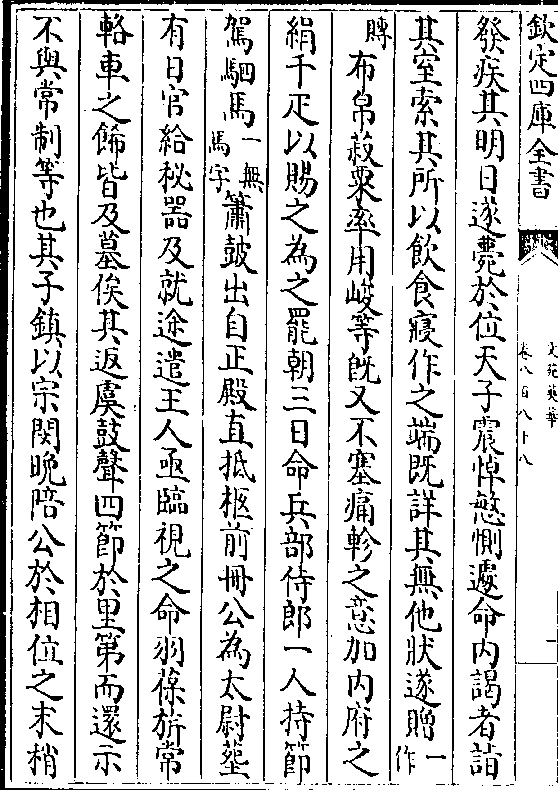 欽定四庫全書
文苑英華
卷八百八十八
發疾其明日遂薨於位天子震悼慜惻遽命内謁者詣
其室索其所以飲食寢作之端既詳其無他狀遂贈一作
賻布帛菽粟率用峻等既又不塞痛軫之意加内府之
絹千疋以賜之為之罷朝三日命兵部侍郎一人持節
駕駟馬一無馬字簫鼓出自正殿直抵柩前冊公為太尉塟
有日官給秘器及就途遣王人亟臨視之命羽葆旂常
輅車之餙皆及墓俟其返虞鼓聲四節於里第而還示
不與常制等也其子鎮以宗閔晚陪公於相位之末梢